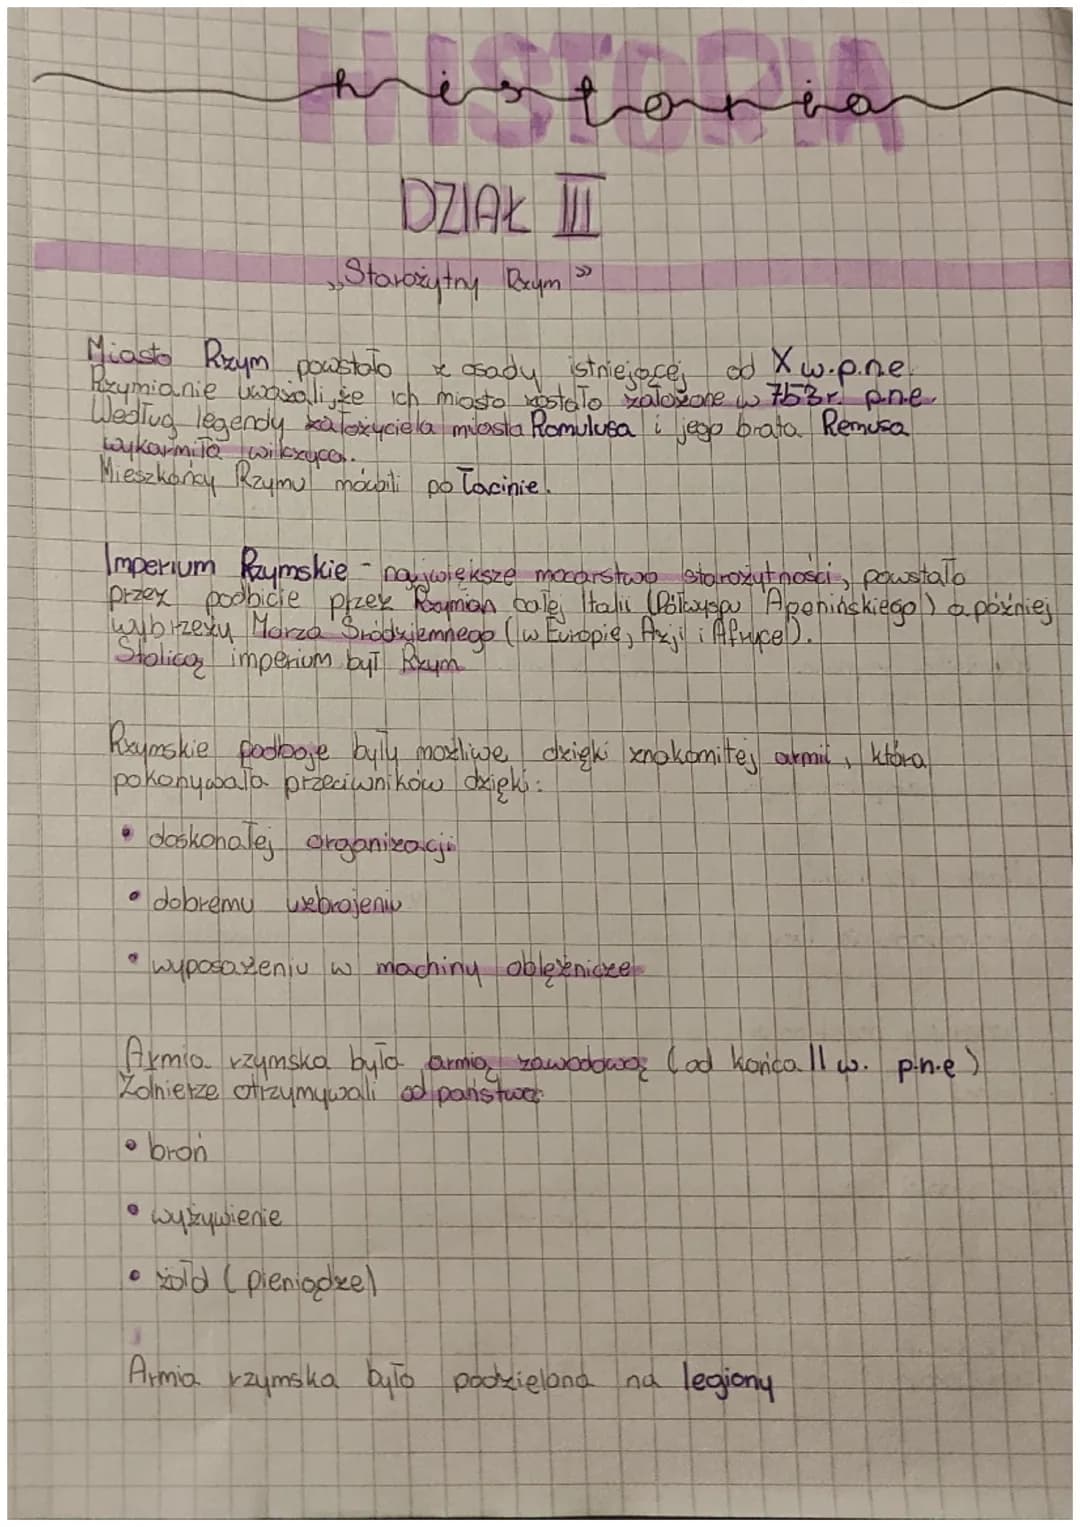 HISTORIA
historia
DZIAŁ III
„Starożytny Rzym"
Miasto Rzym powstało z osady istniejącej od X w.p.n.e.
Rzymianie uważali, że ich miasto zostało założone w 753r. p.n.e.
Według legendy założyciela miasta Romulusa i jego brata Remusa
wykarmiła wilczyca.
Mieszkańcy Rzymu mówili po łacinie.
Imperium Rzymskie - największe mocarstwo starożytności, powstało
przez podbicie przez Rzymian całej Italii (Półwyspu Apenińskiego) a później
wybrzeży Morza Śródziemnego (w Europie, Azji i Afryce).
Stolicą imperium był Rzym
Rzymskie podboje były możliwe dzięki znakomitej armii, która
pokonywała przeciwników dzięki:
• doskonałej organizacji
• dobremu uzbrojeniu
• wyposażeniu w machiny oblężnicze
Armia rzymska była armią zawodową (od końca II w. p.n.e)
Żołnierze otrzymywali od państwa:
• broń
• wyżywienie
• żołd (pieniądze)
Armia rzymska było podzielona na legiony